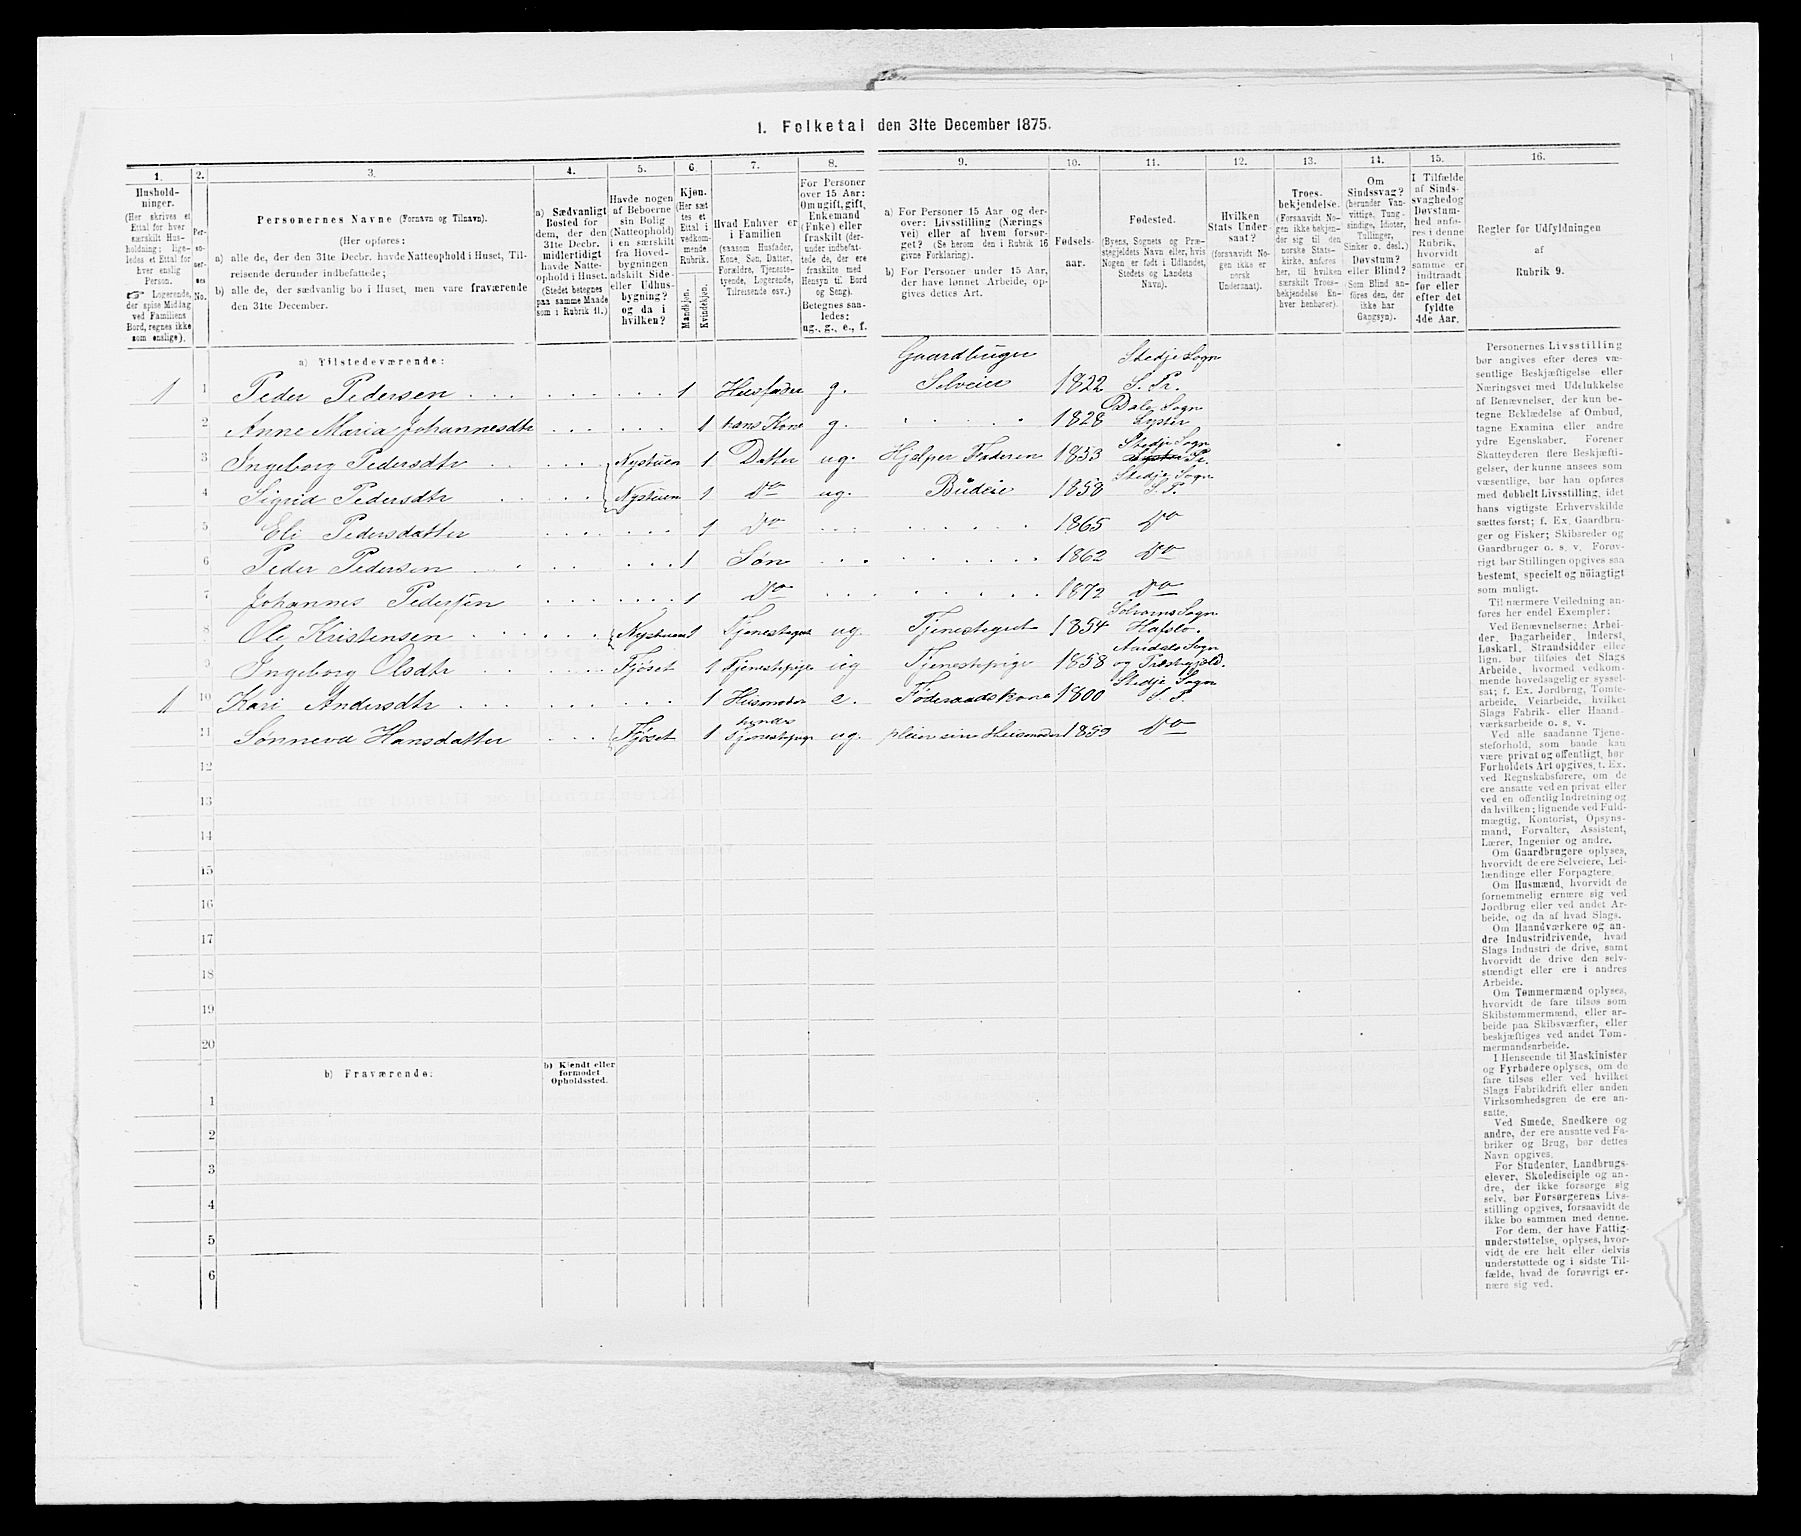 1. Folketal den 31te December 1875.
1. 2. 3. 4. 5. 6. 7. 8. 9. 10. 11. 12. 13. 14. 15. 16.
Hushold-
ninger.
(Her skrives et
Ettal for hver
særskilt Hus-
holdning; lige-
ledes et Ettal for
hver enslig
Person.
☞ Logerende,
der spise Middag
ved Familiens
Bord, regnes ikke
som enslige).
Per-
so-
ner-
nes
No.
Personernes Navne (Fornavn og Tilnavn).
(Her opføres:
a) alle de, der den 31te Decbr. havde Natteophold i Huset, Til-
reisende derunder indbefattede;
b) alle de, der sædvanlig bo i Huset, men vare fraværende
den 31te December.
a) Sædvanligt
Bosted for
dem, der den
31te Decbr.
midlertidigt
havde Natte-
ophold i Huset.
(Stedet betegnes
paa samme Maade
som i Rubrik 11.)
Havde nogen
af Beboerne
sin Bolig
(Natteophold)
i en særskilt
fra Hoved-
bygningen
adskilt Side-
eller Udhus-
bygning?
og da i
hvilken?
Kjøn.
(Her sæt-
tes et
Ettal i
vedkom-
mende
Rubrik.
Mandkjøn.
Kvindekjøn.
Hvad Enhver er
i Familien
(saasom Husfader,
Kone, Søn, Datter,
Forældre, Tjeneste-
tyende, Logerende,
Tilreisende osv.)
For Personer
over 15 Aar:
Om ugift, gift,
Enkemand
(Enke) eller
fraskilt (der-
under indbefat-
tede de, der ere
fraskilte med
Hensyn til Bord
og Seng).
Betegnes saa-
ledes:
ug., g., e., f.
a) For Personer 15 Aar og der-
over: Livsstilling (Nærings-
vei) eller af hvem forsør-
get? (Se herom den i Rubrik 16
givne Forklaring).
b) For Personer under 15 Aar,
der have lønnet Arbeide, op-
gives dettes Art.
Fødsels-
aar.
Fødested.
(Byens, Sognets og Præ-
stegjeldets Navn eller, hvis
Nogen er født i Udlandet,
Stedets og Landets
Navn).
Hvilken
Stats Under-
saat?
(forsaavidt No-
gen ikke er
norsk
Undersaat).
Troes-
bekjendelse.
(Forsaavidt No-
gen ikke bekjen-
der sig til den
norske Stats-
kirke, anføres
her, til hvilken
særskilt Troes-
bekjendelse En-
hver henhører).
Om
Sindssvag?
(herunder Van-
vittige, Tung-
sindige, Idioter,
Tullinger,
Sinker o. desl.)
Døvstum?
eller Blind?
(Som Blind an-
føres den, der
ikke har
Gangsyn).
I Tilfælde
af Sinds-
svaghed og
Døvstum-
hed anfø-
res i denne
Rubrik,
hvorvidt
samme er
indtraadt
før eller
efter det
fyldte
4de Aar.
Regler for Udfyldningen
af
Rubrik 9.
a) Tilstedeværende:
1 1 Peder Pedersen 1 Husfader g. Gaardbruger Selveier 1822 Stedje Sogn S. Pr.
2 Anne Maria Johannesdtr 1 hans Kone g. 1828 Dale Sogn Lyster
3 Ingeborg Pedersdtr Nystuen 1 Datter ug. Hjelper Faderen 1853 Stedje Sogn S. Pr.
4 Sigrid Pedersdtr Nystuen 1 Do ug. Budeie 1858 Stedje Sogn S. P.
5 Eli Pedersdatter 1 Do 1865 Do
6 Peder Pedersen 1 Søn 1862 Do
7 Johannes Pedersen 1 Do 1872 Do
8 Ole Kristensen Nystuen 1 Tjenestegut ug. Tjenestegut 1854 Solvorns Sogn Hafslo.
9 Ingeborg Olsdtr Fjøset 1 Tjenestepige ug Tjenestepige 1858 Aurdals Sogn og Præstegjeld.
1 10 Kari Andersdtr 1 Husmoder e. Føderaadskone 1800 Stedje Sogn S. P.
11 Sønneva Hansdatter Fjøset 1 hendes Tjenestepige ug. pleier sin Husmoder 1859 Do
12
13
14
15
16
17
18
19
20
b) Fraværende:
b) Kjendt eller
formodet
Opholdssted.
1
2
3
4
5
6
Personernes Livsstilling
bør angives efter deres væ-
sentlige Beskjæftigelse eller
Næringsvei med Udelukkelse
af Benævnelser, der kun be-
tegne Beklædelse af Ombud,
tagne Examina eller andre
ydre Egenskaber. Forener
Skatteyderen flere Beskjæfti-
gelser, der kunne ansees som
væsentlige, bør han opføres
med dobbelt Livsstilling, idet
hans vigtigste Erhvervskilde
sættes først; f. Ex. Gaardbru-
ger og Fisker; Skibsreder og
Gaardbruger o. s. v. Forøv-
rigt bør Stillingen opgives saa
bestemt, specielt og nöiagtigt
som muligt.
Til nærmere Veiledning an-
føres her endel Exempler:
Ved Benævnelserne: Arbei-
der, Dagarbeider, Inderst,
Løskarl, Strandsidder eller
lign. bør tilføies det Slags
Arbeide, hvormed vedkom-
mende hovedsagelig er syssel-
sat; f. Ex. Jordbrug, Tomte-
arbeide, Veiarbeide, hvilket
Slags Fabrik- eller Haand-
værksarbeide o. s. v.
Ved alle saadanne Tjene-
steforhold, som baade kan
være privat og offentligt, bør
Forholdets Art opgives, t. Ex.
ved Regnskabsførere, om de
ere ansatte ved en privat eller
ved en offentlig Indretning og
da hvilken; lignende ved Fuld-
mægtig, Kontorist, Opsyns-
mand, Forvalter, Assistent,
Lærer, Ingeniør og andre.
Om Gaardbrugere oplyses,
hvorvidt de ere Selveiere, Lei-
lændinge eller Forpagtere.
Om Husmænd, hvorvidt de
fornemmelig ernære sig ved
Jordbrug eller ved andet Ar-
beide, og da af hvad Slags.
Om Haandværkere og an-
dre Industridrivende, hvad
Slags Industri de drive, samt
hvorvidt de drive den selv-
stændigt eller ere i andres
Arbeide.
Om Tømmermænd oplyses,
hvorvidt de fare tilsøs som
Skibstømmermænd, eller ar-
beide paa Skibsværfter, eller
beskjæftiges ved andet Tøm-
mermandsarbeide.
I Henseende til Maskinister
og Fyrbødere oplyses, om de
fare tilsøs eller ved hvilket
Slags Fabrikdrift eller anden
Virksomhedsgren de ere an-
satte.
Ved Smede, Snedkere og
andre, der ere ansatte ved Fa-
briker og Brug, bør dettes
Navn opgives.
For Studenter, Landbrugs-
elever, Skoledisciple og an-
dre, der ikke forsørge sig
selv, bør Forsørgerens Livs-
stilling opgives, forsaavidt de
ikke bo sammen med denne.
For dem, der have Fattig-
understøttelse, oplyses, hvor-
vidt de ere helt eller delvis
understøttede og i sidste Til-
fælde, hvad de forøvrigt er-
nære sig ved.